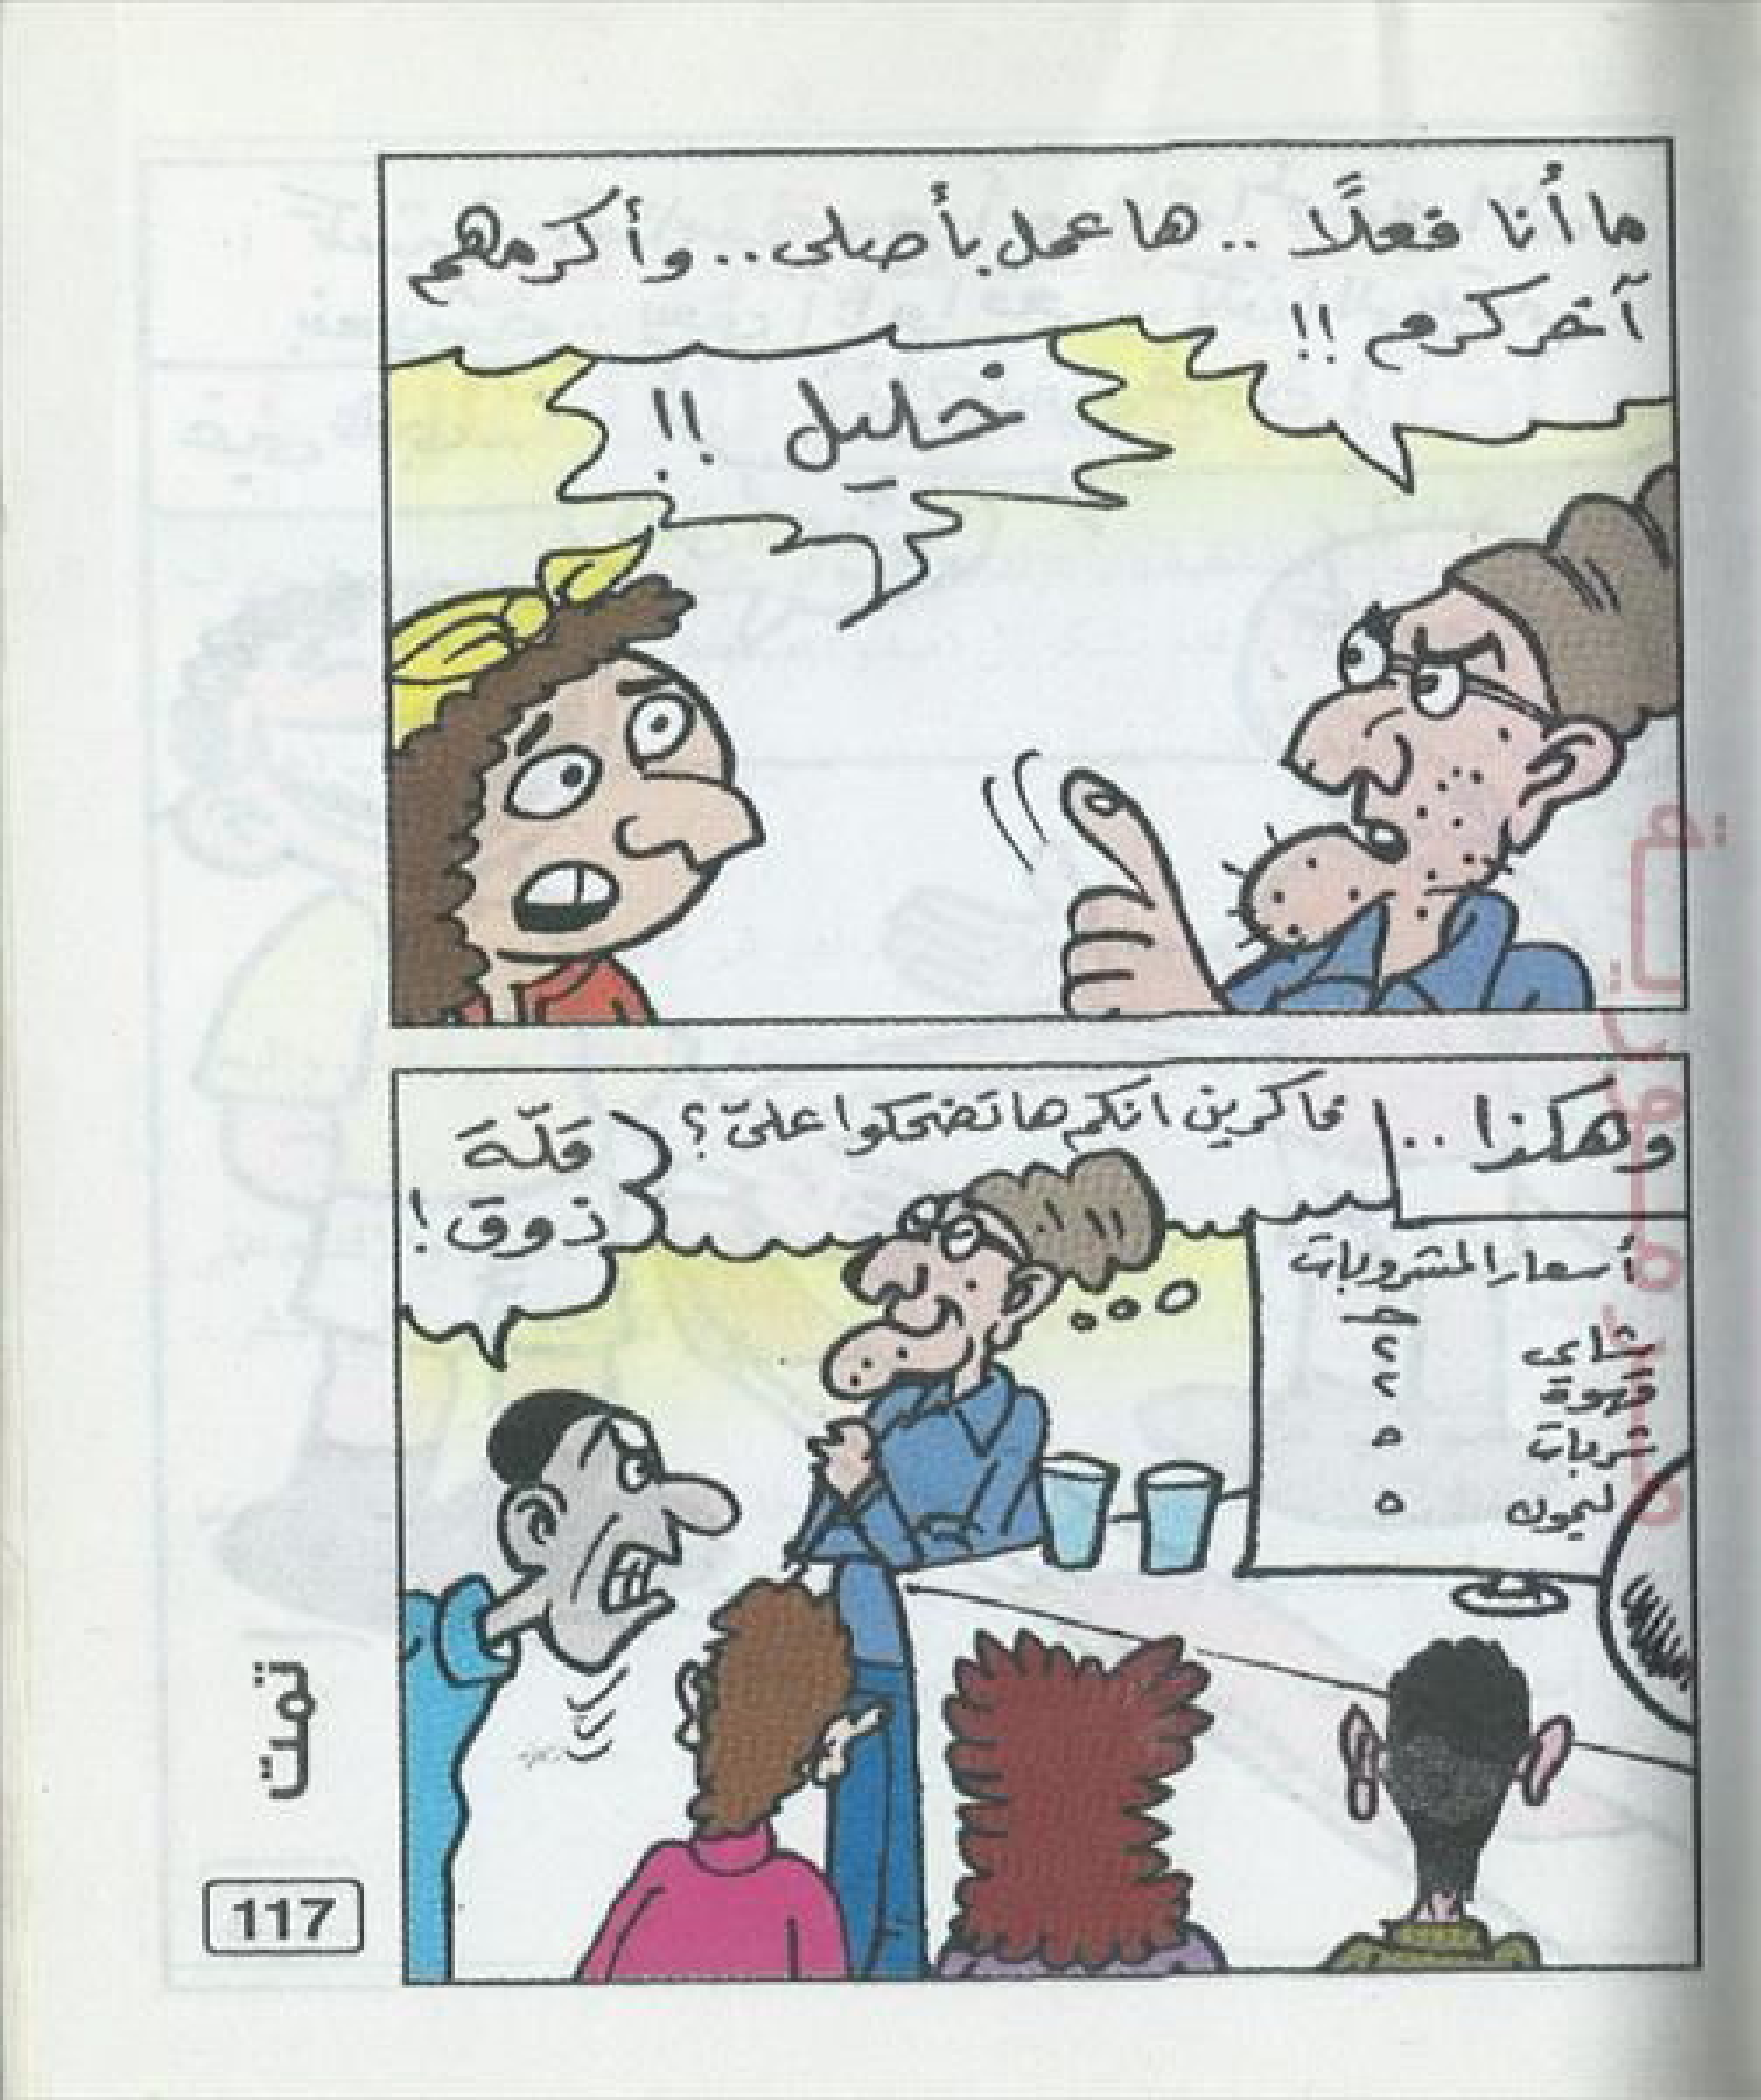 ما أنا فعلًا .. هاعمل بأصلى .. وأكرمهم
آخر كرم !!
خليل !!
وهكذا ..
فاكرين انكم هاتضحكوا علىّ ؟
قلّة
ذوق !
أسعار المشروبات
شاى
قهوة
شربات ٥
ليمون ٥
تمت
117